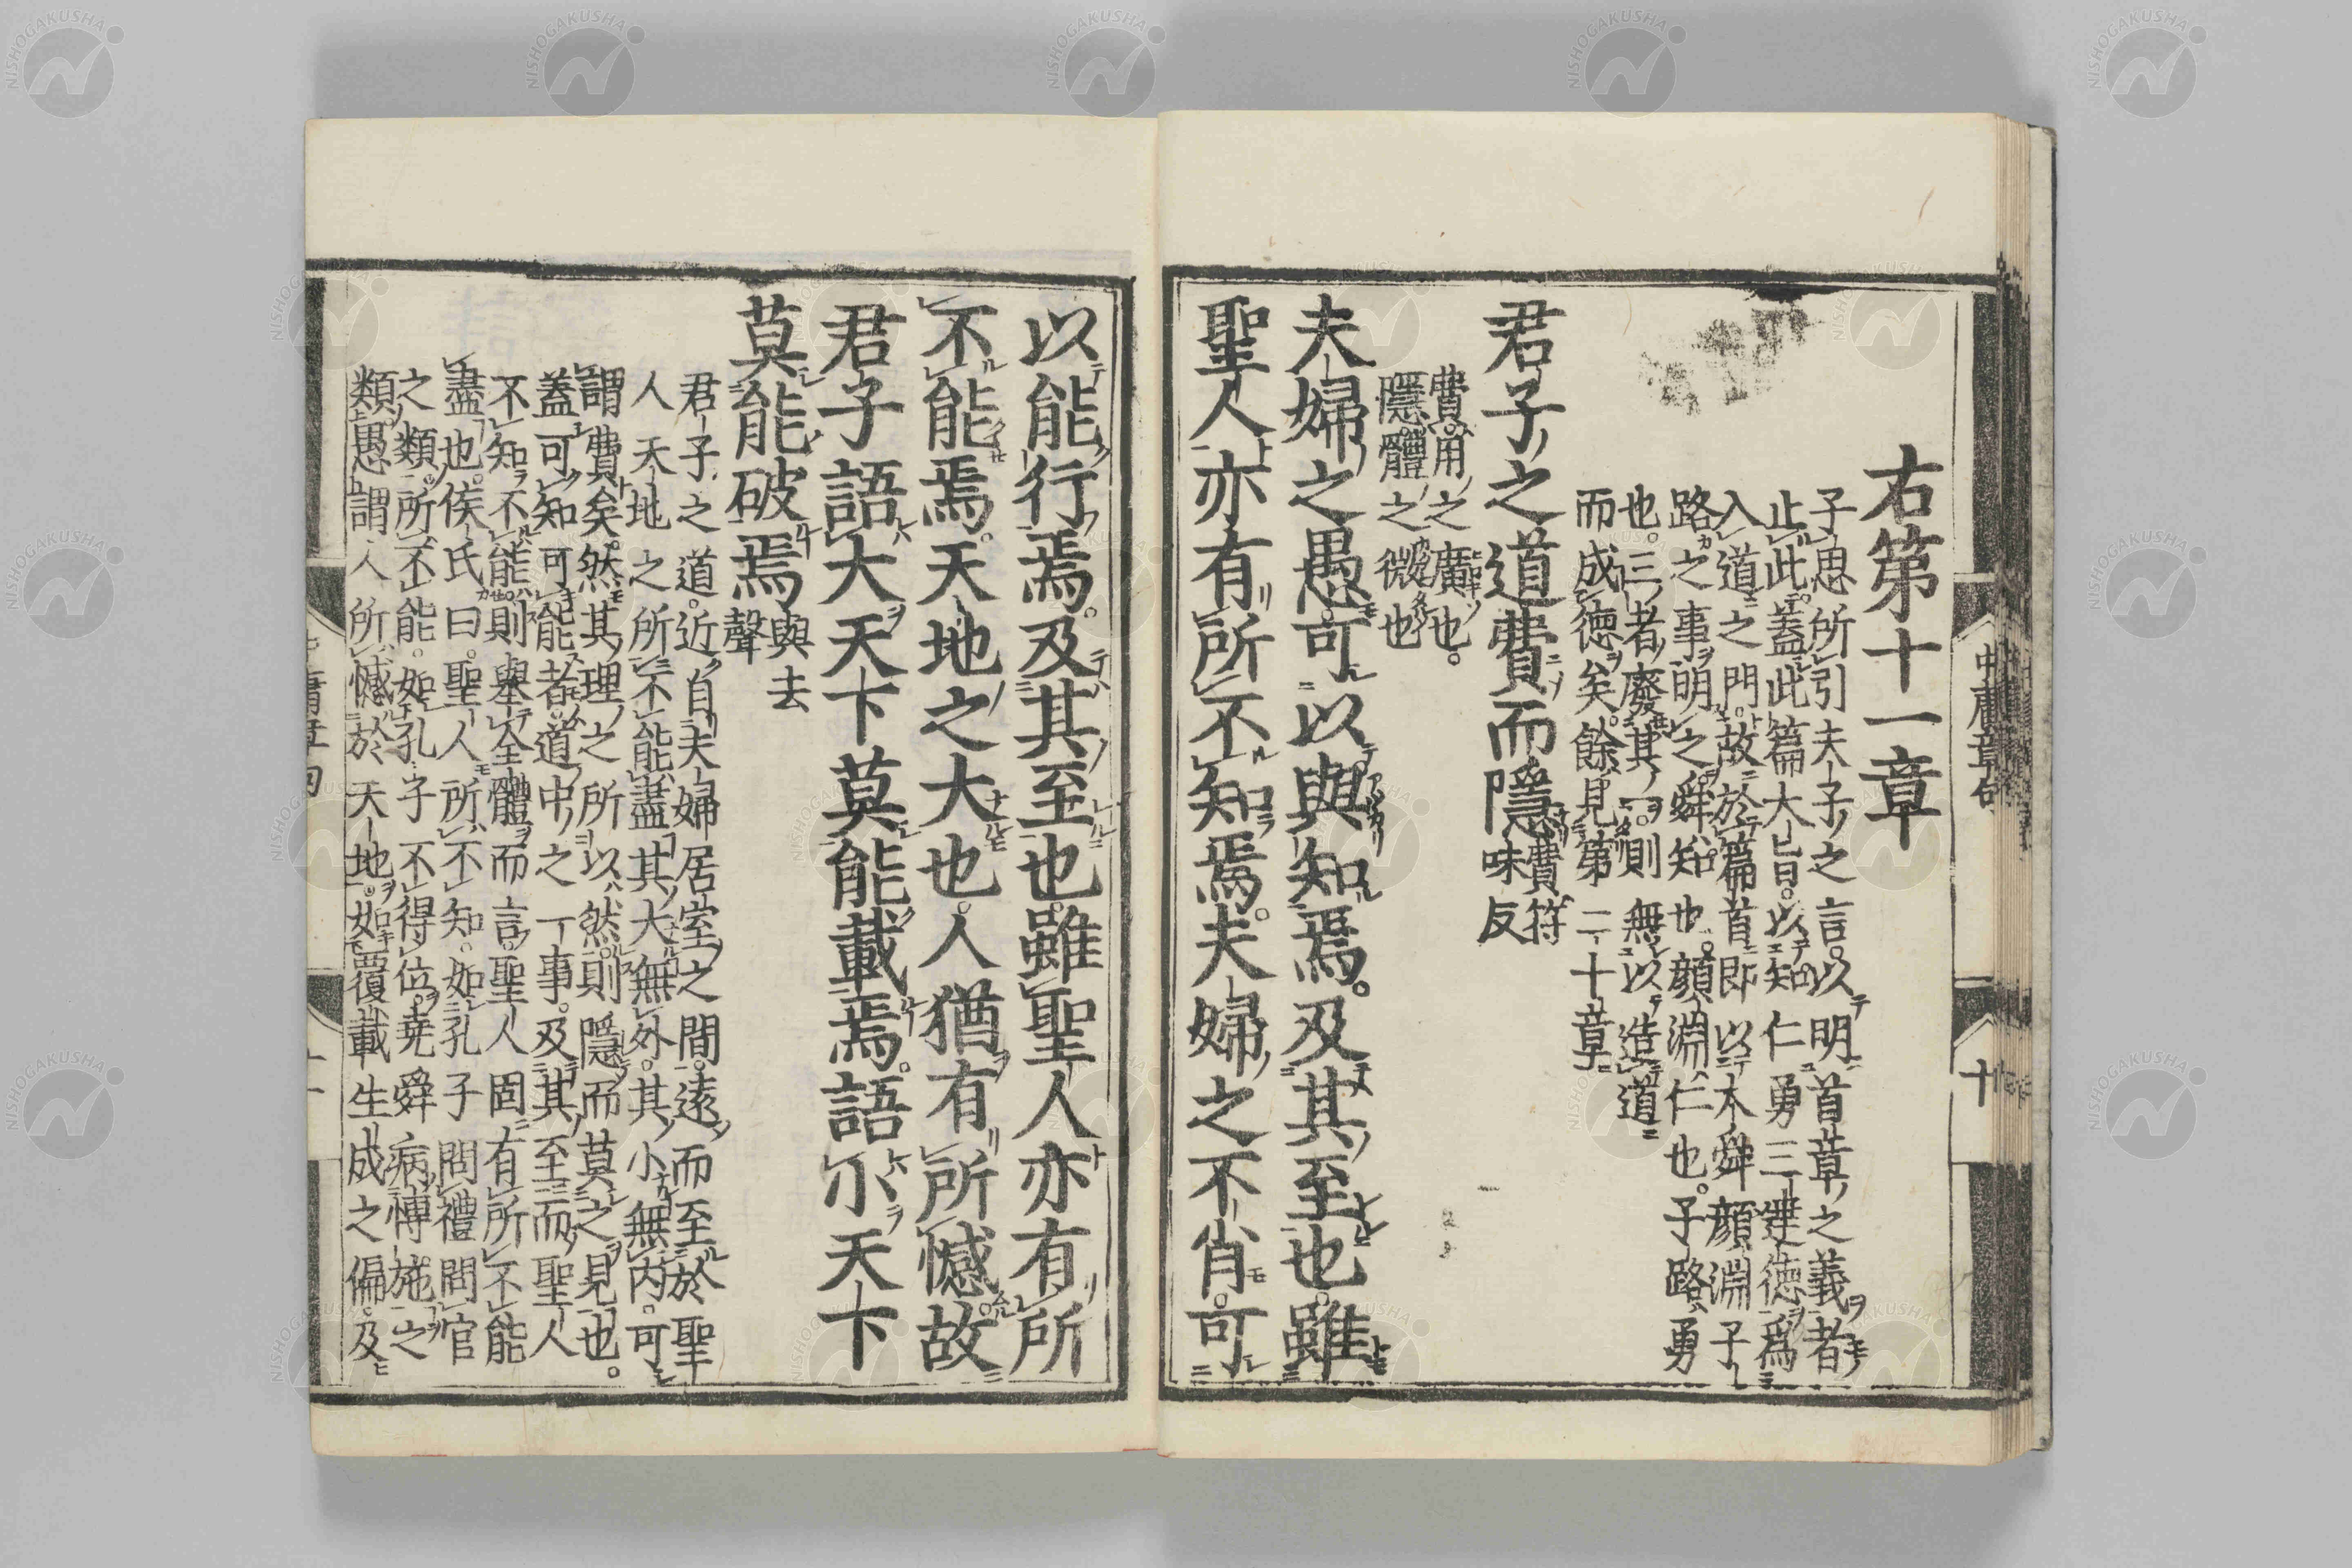 右第十一章
子思所引夫子之言以明首章之義者
止此蓋此篇大旨以知仁勇三達德爲
入道之門故於篇首即以大舜顏淵子
路之事明之舜知也顏淵仁也子路勇
也三者廢其一則無以造道
而成德矣餘見第二十章
君子之道費而隱費符
味反
費用之廣也
隱體之微也
夫婦之愚可以與知焉及其至也雖
聖人亦有所不知焉夫婦之不肖可
以能行焉及其至也雖聖人亦有所
不能焉天地之大也人猶有所憾故
君子語大天下莫能載焉語小天下
莫能破焉與去
聲
君子之道近自夫婦居室之間遠而至於聖
人天地之所不能盡其大無外其小無內可
謂費矣然其理之所以然則隱而莫之見也
蓋可知可能者道中之一事及其至而聖人
不知不能則舉全體而言聖人固有所不能
盡也侯氏曰聖人所不知如孔子問禮問官
之類所不能如孔子不得位堯舜病博施之
類愚謂人所憾於天地如覆載生成之偏及
中庸章句
十
NISHOGAKUSHA